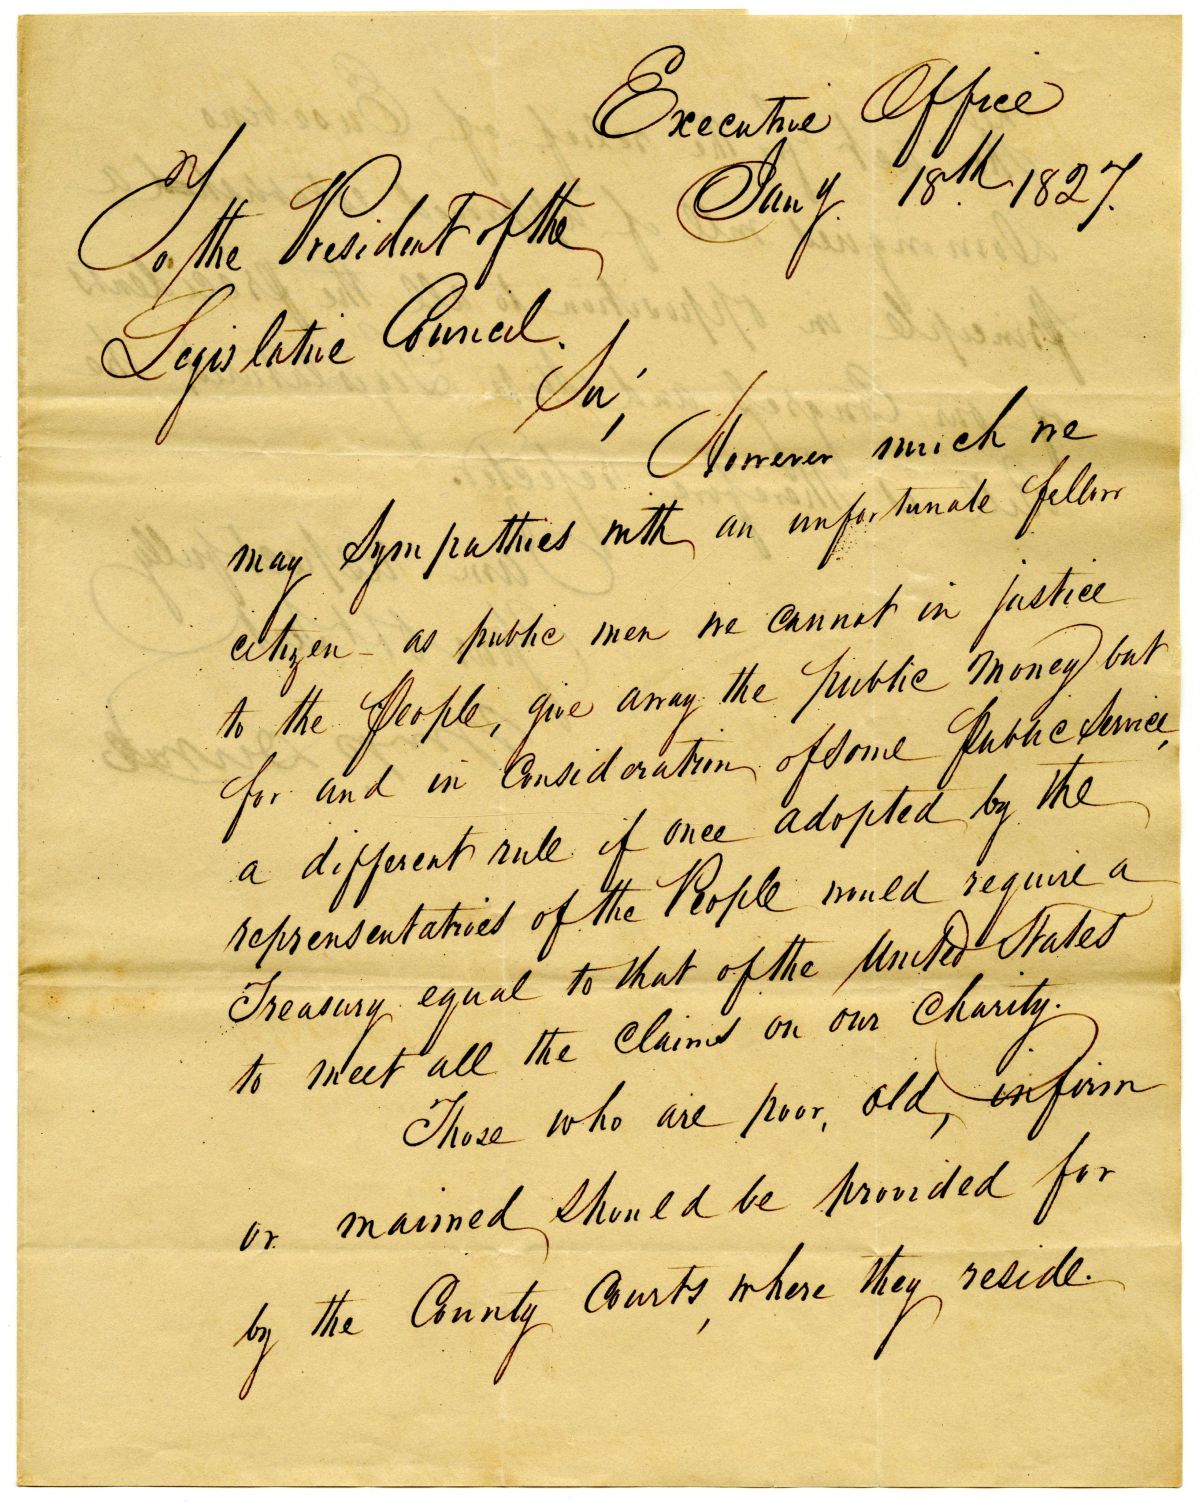 Executive Office
Jany. 18th. 1827.
To the President of the
Legislative Council.
Sir,
However much we
may Sympathies with an unfortunate fellow
citizen - as public men we cannot in justice
to the People, give away the public money but
for and in Consideration of some Public Service,
a different rule if once adopted by the
reprensentatives of the People would require a
Treasury equal to that of the United States
to meet all the claims on our Charity.
Those who are poor, old, infirm
or maimed should be provided for
by the County Courts, where they reside.